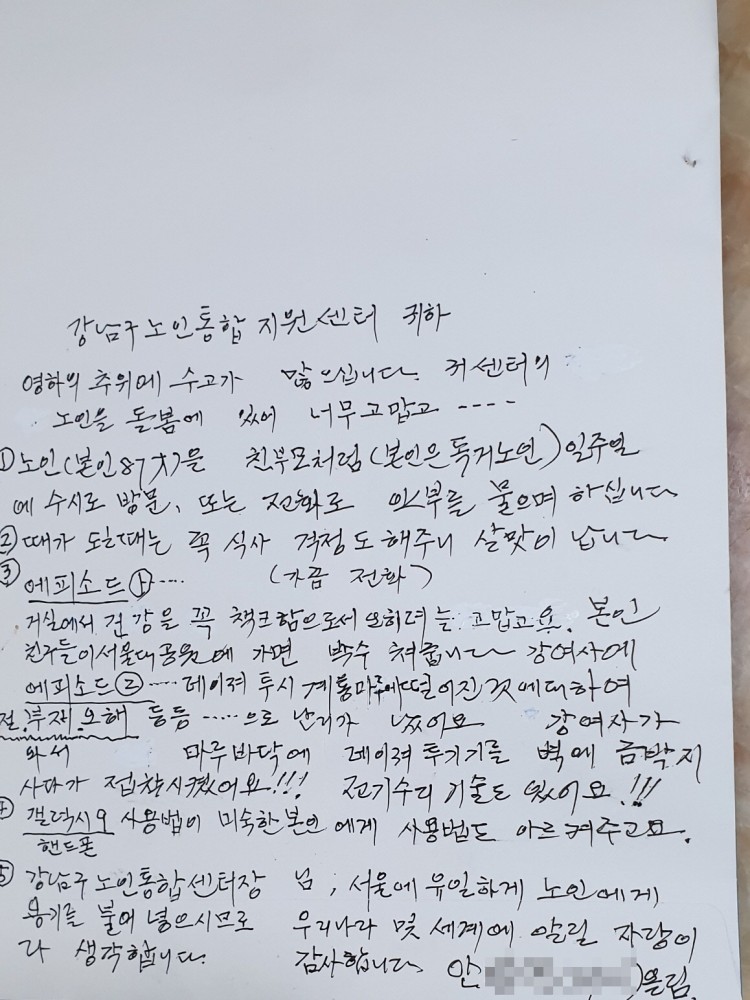 강남구노인통합 지원센터 귀하
영하의 추위에 수고가 많으십니다. 귀센터의
노인을 돌봄에 있어 너무고맙고 ----
① 노인(본인87才)을 친부모처럼(본인은독거노인) 일주일
에 수시로 방문, 또는 전화로 안부를 물으며 하십니다
② 때가 되때는 꼭 식사 걱정도해주니 살맛이 납니다
③ 에피소드 ① .... (가끔 전화)
거실에서 건강을 꼭 책크함으로서 오히려는 고맙고요. 본인
친구들이서울대공원에 가면 박수 쳐줍니다 강여사에
에피소드 ② ..... 레이져 투시 계통마루에떨어진것에대하여
부재.오해 등등 ..... 으로 난리가 났어요 강여사가
와서 마루바닥에 레이져투기기를 벽에 금박지
사다가 접착시켰어요!!! 전기수리 기술도 있어요!!!
갤럭시9 사용법이 미숙한본인에게 사용법도 아르켜주고요.
핸드폰
⑤ 강남구노인통합센터장 님, 서울에 유일하게 노인에게
용기를 불어 넣으시므로 우리나라 및 세계에 알릴 자랑이
라 생각합니다. 감사합니다 안 )올림.